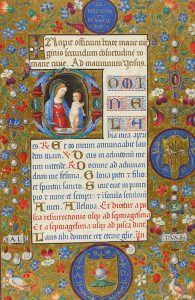 Incipit officium beate marie vir
ginis secundum consuetudinem ro
mane curie. Ad matutinum versus.
DOMI
NE
LA
bia mea aperi
es. Et os meum annunciabit lau
dem tuam. Deus in adiutorium me
um intende. Domine ad adiuvan
dum me festina. Gloria patri et
filio et spiritui sancto. Sicut erat in prin
cipio et nunc et semper et in secula seculorum
Amen. Alleluia. Et dicitur a pas
ca resurrectionis usque ad septuagesimam
Et a septuagesima usque ad pasca dicitur
Laus tibi domine rex eterne glorie.